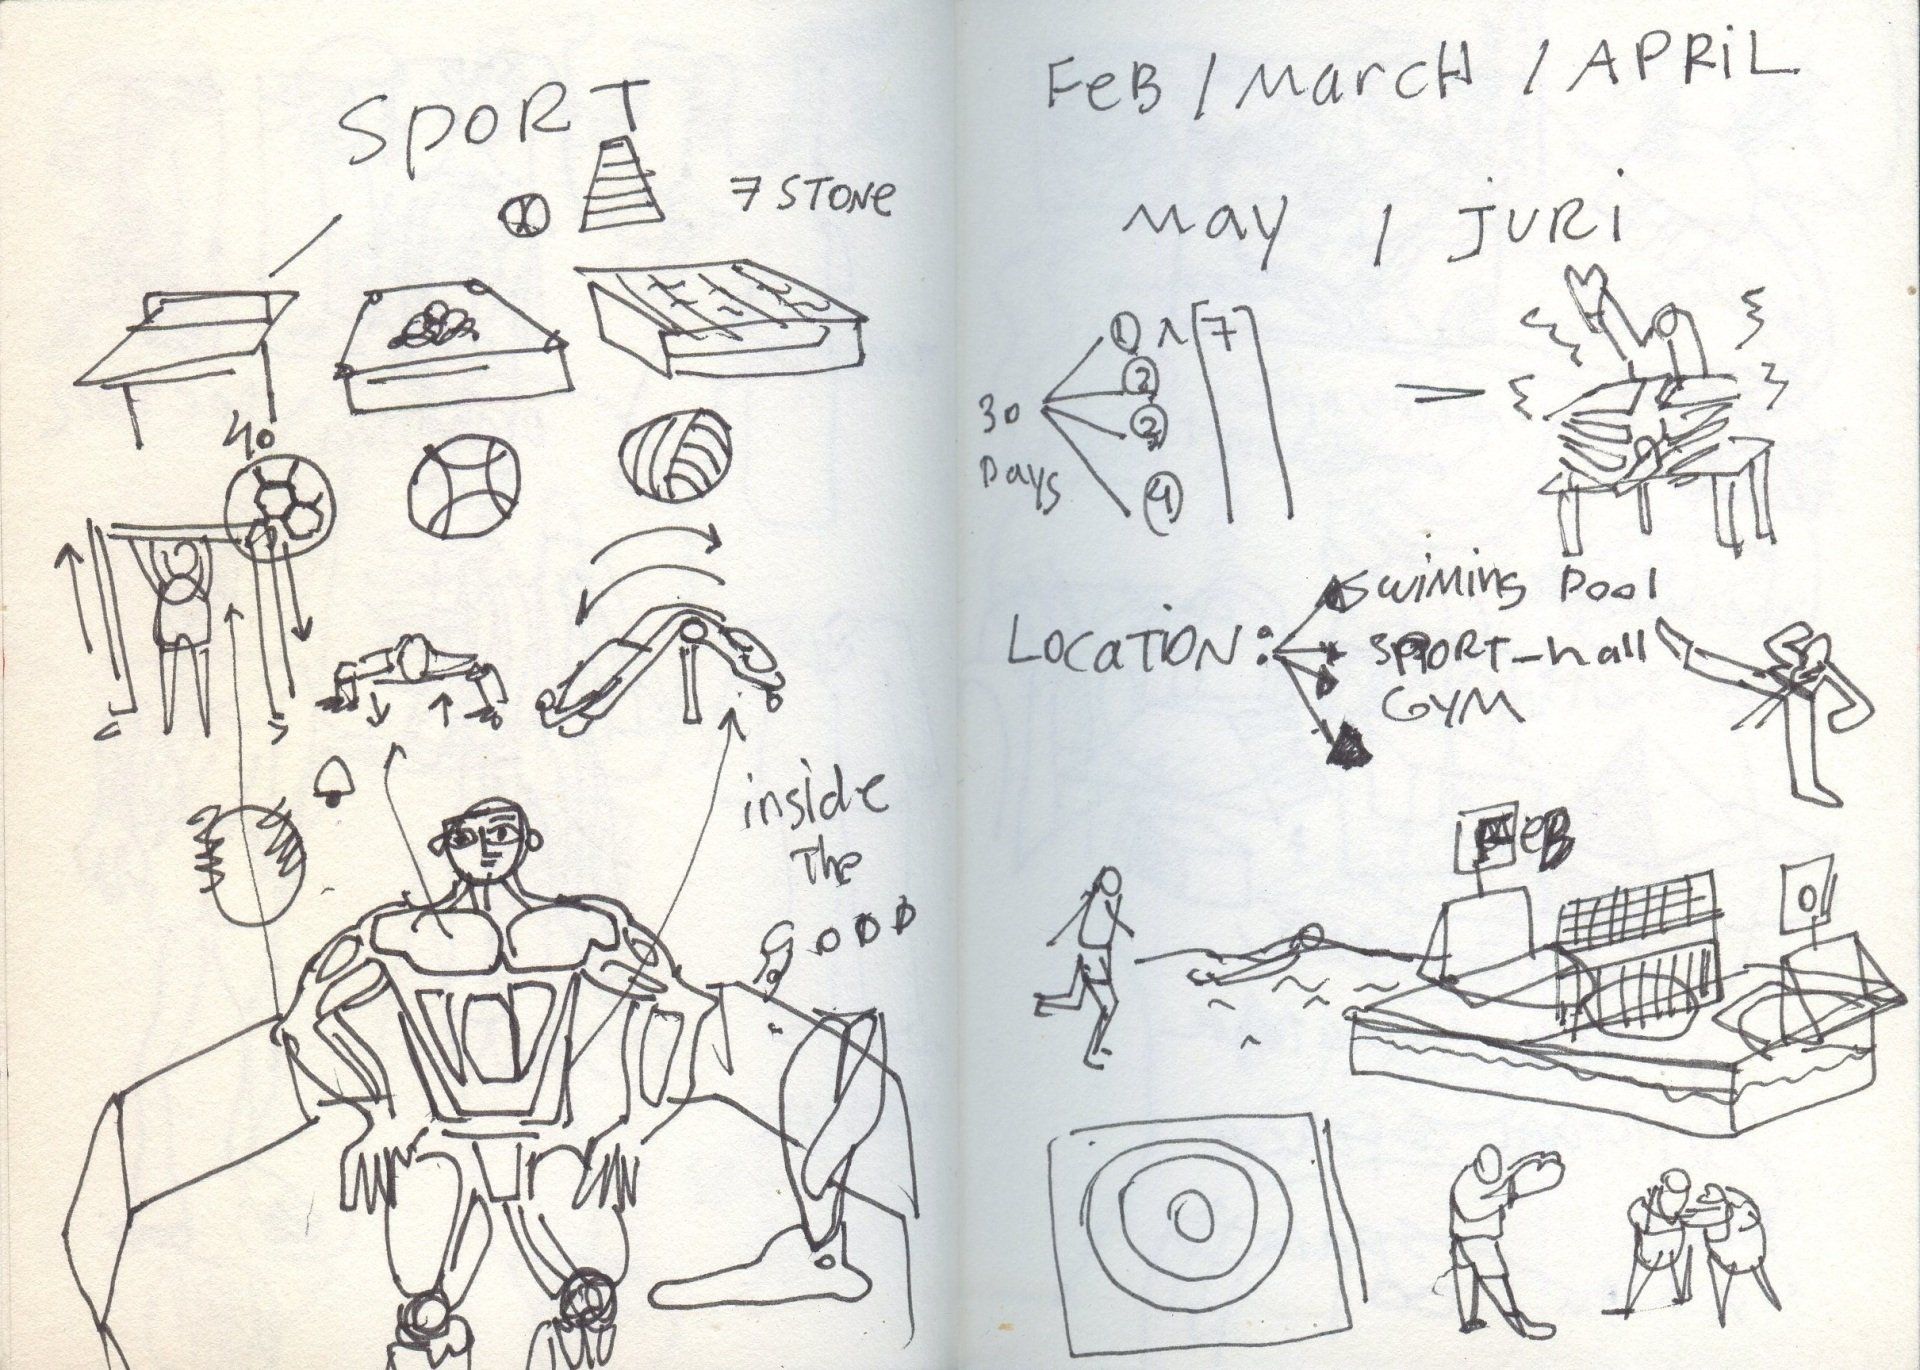 SPORT
7 STONE
inside
The
GOOD
FeB / MarcH / APRiL
May / JURi
30
Days
1
7
2
4
LOCATION:
SWiMing Pool
SPORT-hall
GYM